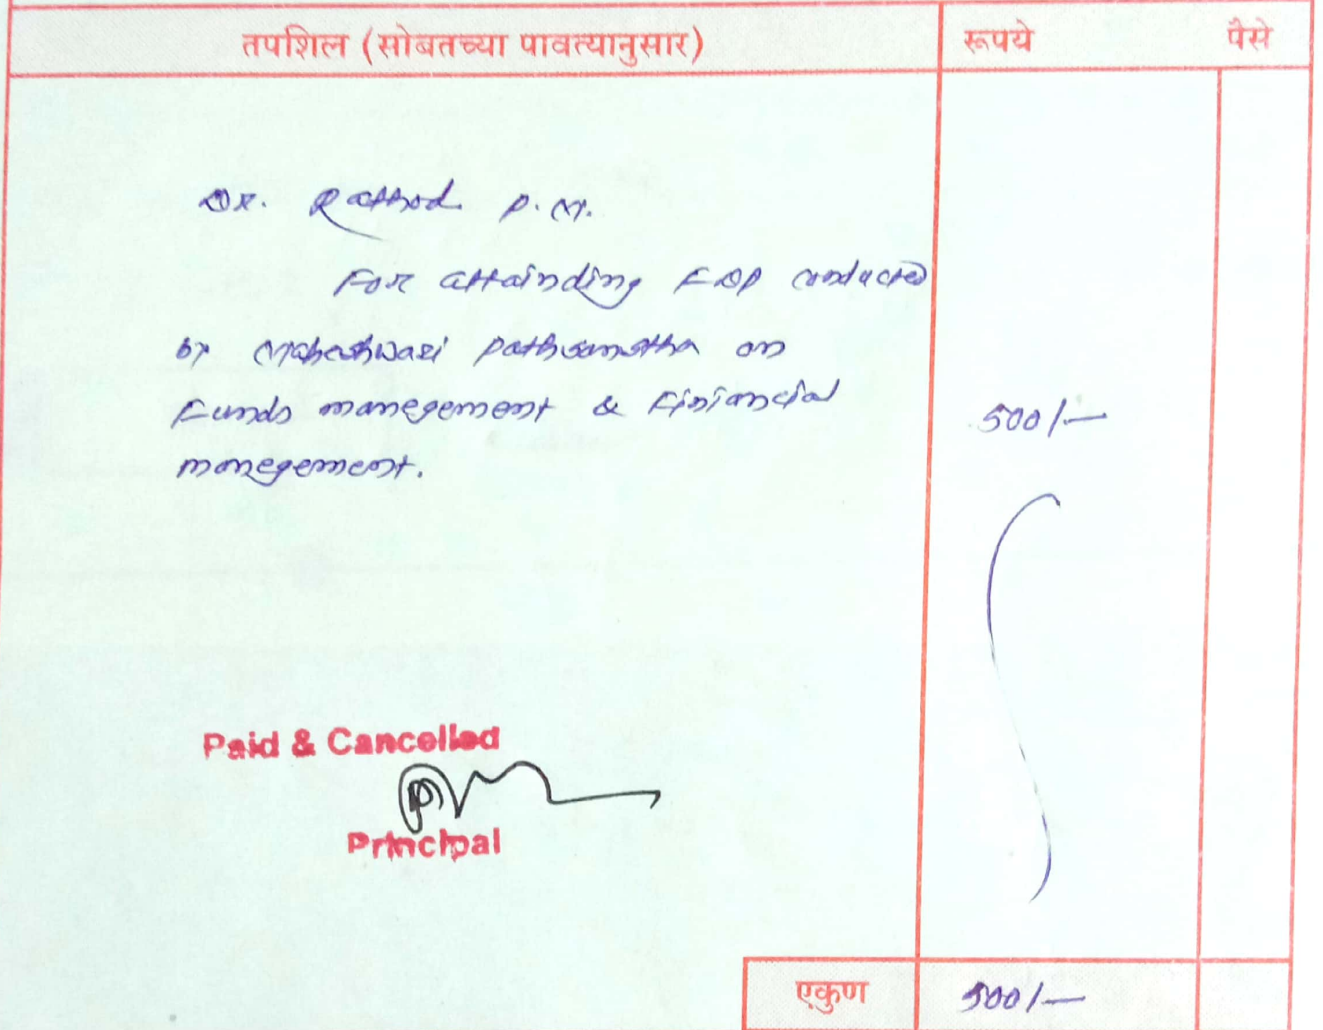 तपशिल (सोबतच्या पावत्यानुसार) रूपये पैसे
Dr. Rathod P. M.
For attainding FDP conducted
by Maheshwari pathsanstha on
Funds manegement & Finiancial
500/-
manegement.
Paid & Cancelled
Principal
एकुण 500/-